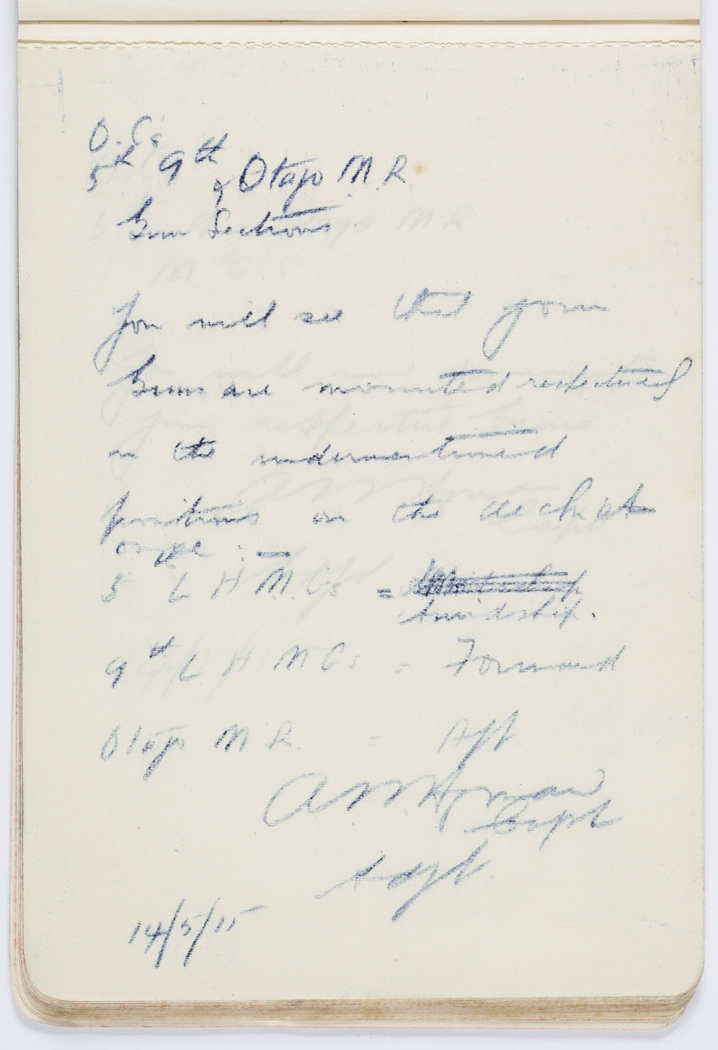 O. Cs
5th 9th & Otago M. R.
Gun Sections
You will see that your
Guns are mounted respectively
in the undermentioned
positions on the deck at
once :—
5 L H M Gs = 
Amidship.
9th L H M Gs = Forward
Otago M R. = Aft
Capt
Adjt.
14/5/15